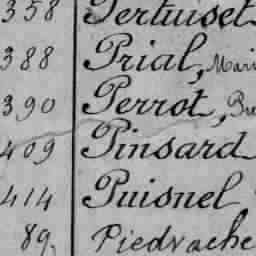 358 Pertuiset
388 Prial, Mari
390 Perrot,
409 Pinsard
414 Puisnel
89. Piedvache